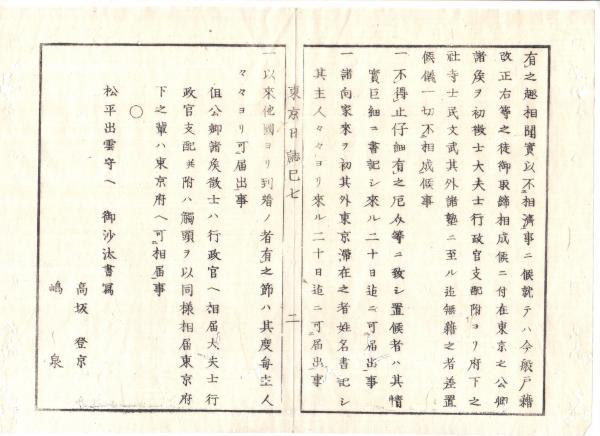 有之趣相聞實以不相濟事ニ候就テハ今般戸籍
改正右等之徒御取締相成候ニ付在東京之公卿
諸矦ヲ初徴士大夫士行政官支配附ヨリ府下之
社寺士民文武其外諸塾ニ至ル迠無籍之者差置
候儀一切不相成候事
一不得止仔細有之厄介等ニ致シ置候者ハ其情
實巨細ニ書記シ來ル二十日迠ニ可届出事
一諸向家來ヲ初其外東京滞在之者姓名書記シ
其主人々々ヨリ來ル二十日迠ニ可届出事
東京日誌巳七
二
一以來他國ヨリ到着ノ者有之節ハ其度毎主人
々々ヨリ可届出事
但公卿諸矦徴士ハ行政官ヘ相届大夫士行
政官支配共附ハ觸頭ヲ以同様相届東京府
下之輩ハ東京府ヘ可相届事
〇
松平出雲守ヘ御沙汰書寫
高坂登京
嶋泉